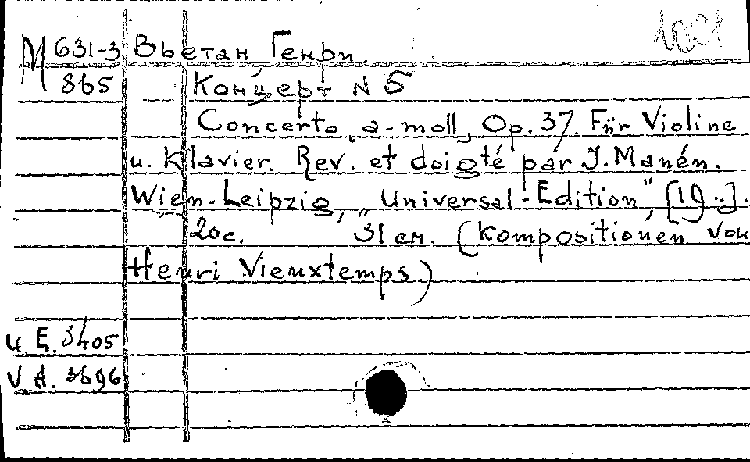 М 631-3 Вьетан, Генри.
865 Концерт N 5
Concerto, a-moll, Op. 37. Für Violine
u. Klavier. Rev. et doigté par J. Manén.
Wien-Leipzig, "Universal-Edition", [19..].
20 c. 31 см. (Kompositionen von
Henri Vieuxtemps)
и Е. 3405
V A. 3696